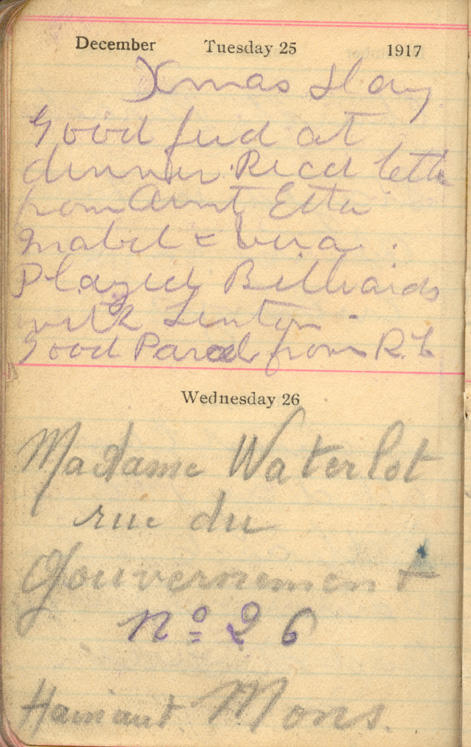 December Tuesday 25 1917
Xmas Day
Good feed at
dinner. Recd lette
from Aunt Etta
Mabel & Vera.
Played Billiards
with Linton.
Good Parcel from R.L
Wednesday 26
Madame Waterlot
rue du
Gouvernement
no 26
Hainaut Mons.